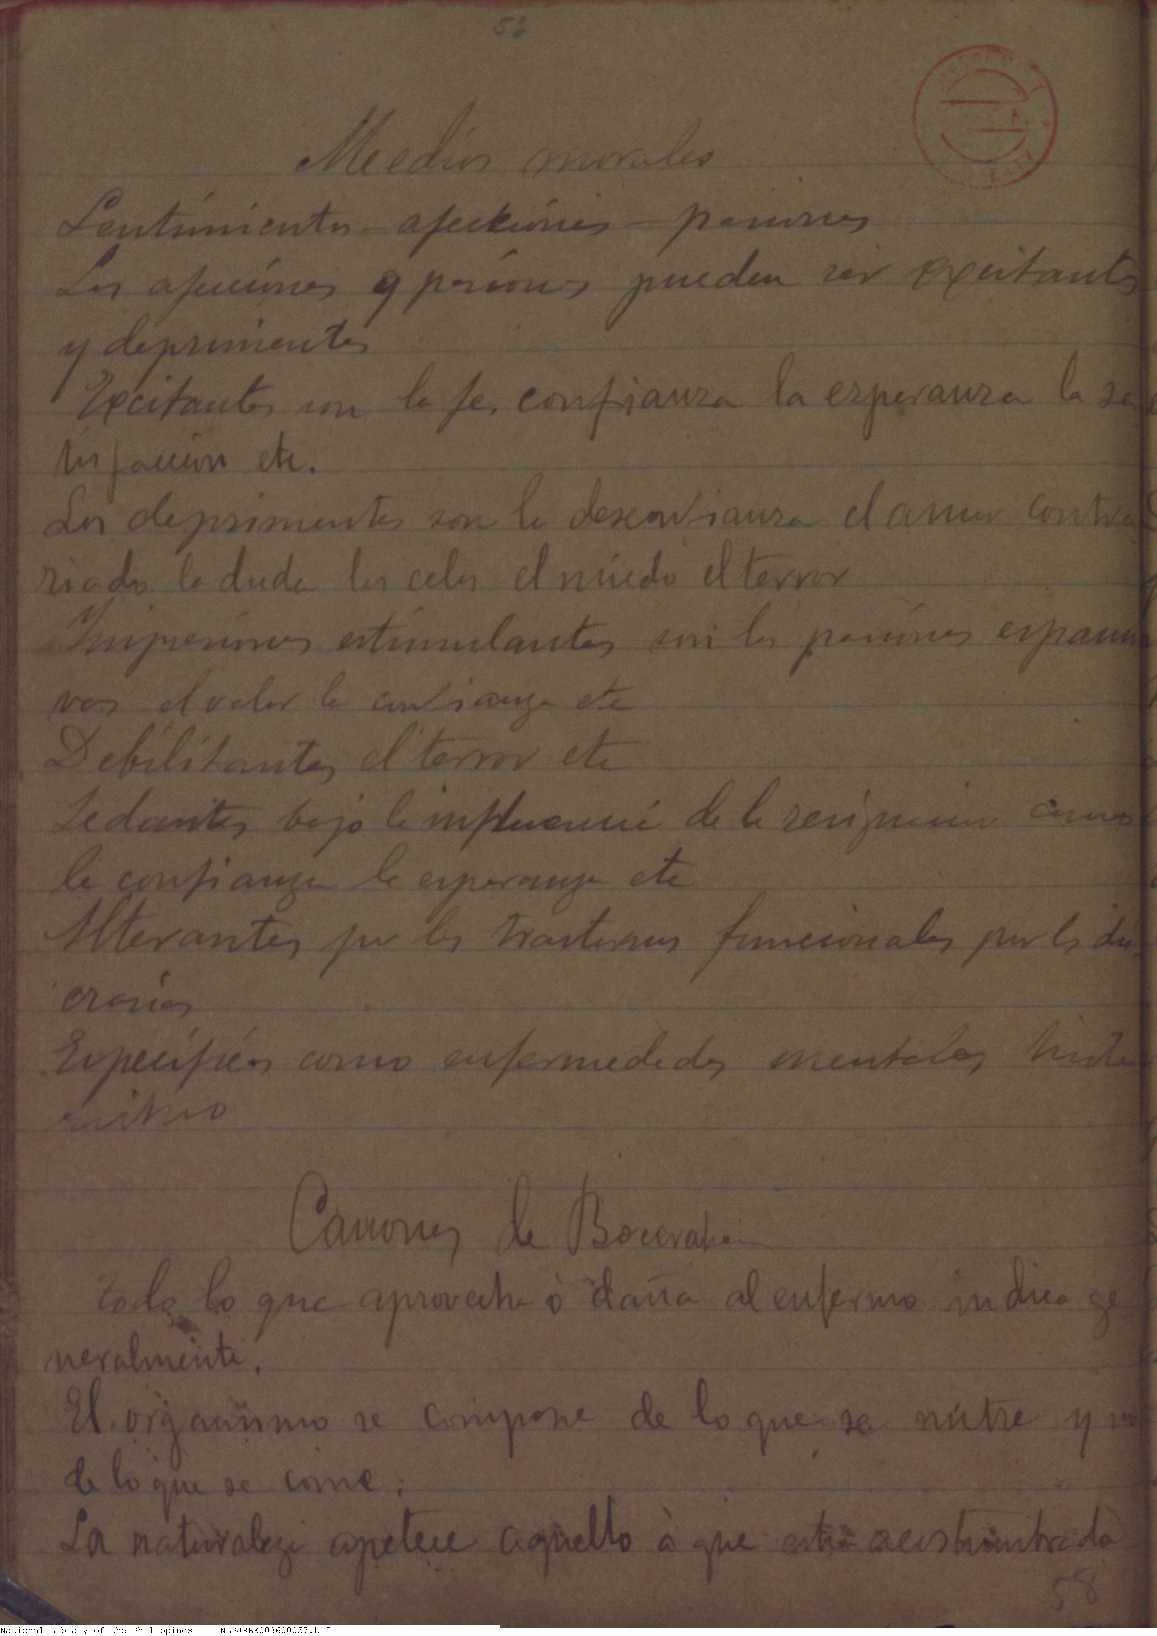 Medios morales
Sentimientos - afecciónes - pasiones
Las afeciónes y pasiónes pueden ser excitantes
y deprimentes
Excitantes son la fe, confianza la esperanza la sa
tisfacción etc.
Los deprimentes son la desconfianza el amor contra
riado la duda los celos el miedo el terror
Impresiónes estimulantes son las pasiónes expansi
vas el valor la confianza etc
Debilitantes el terror etc
Sedantes bajo la influencia de la resignacion como
la confianza la esperanza etc
Alterantes por los trastornos funcionales por las dis
crasias
Especificos como enfermedades mentales histe
rismo
de
Todo lo que aprovecha ó daña al enfermo indica ge
neralmente.
El organismo se compone de lo que se nutre y no
de lo que se come;
La naturaleza apetece aquello à que está acostumbrada
58